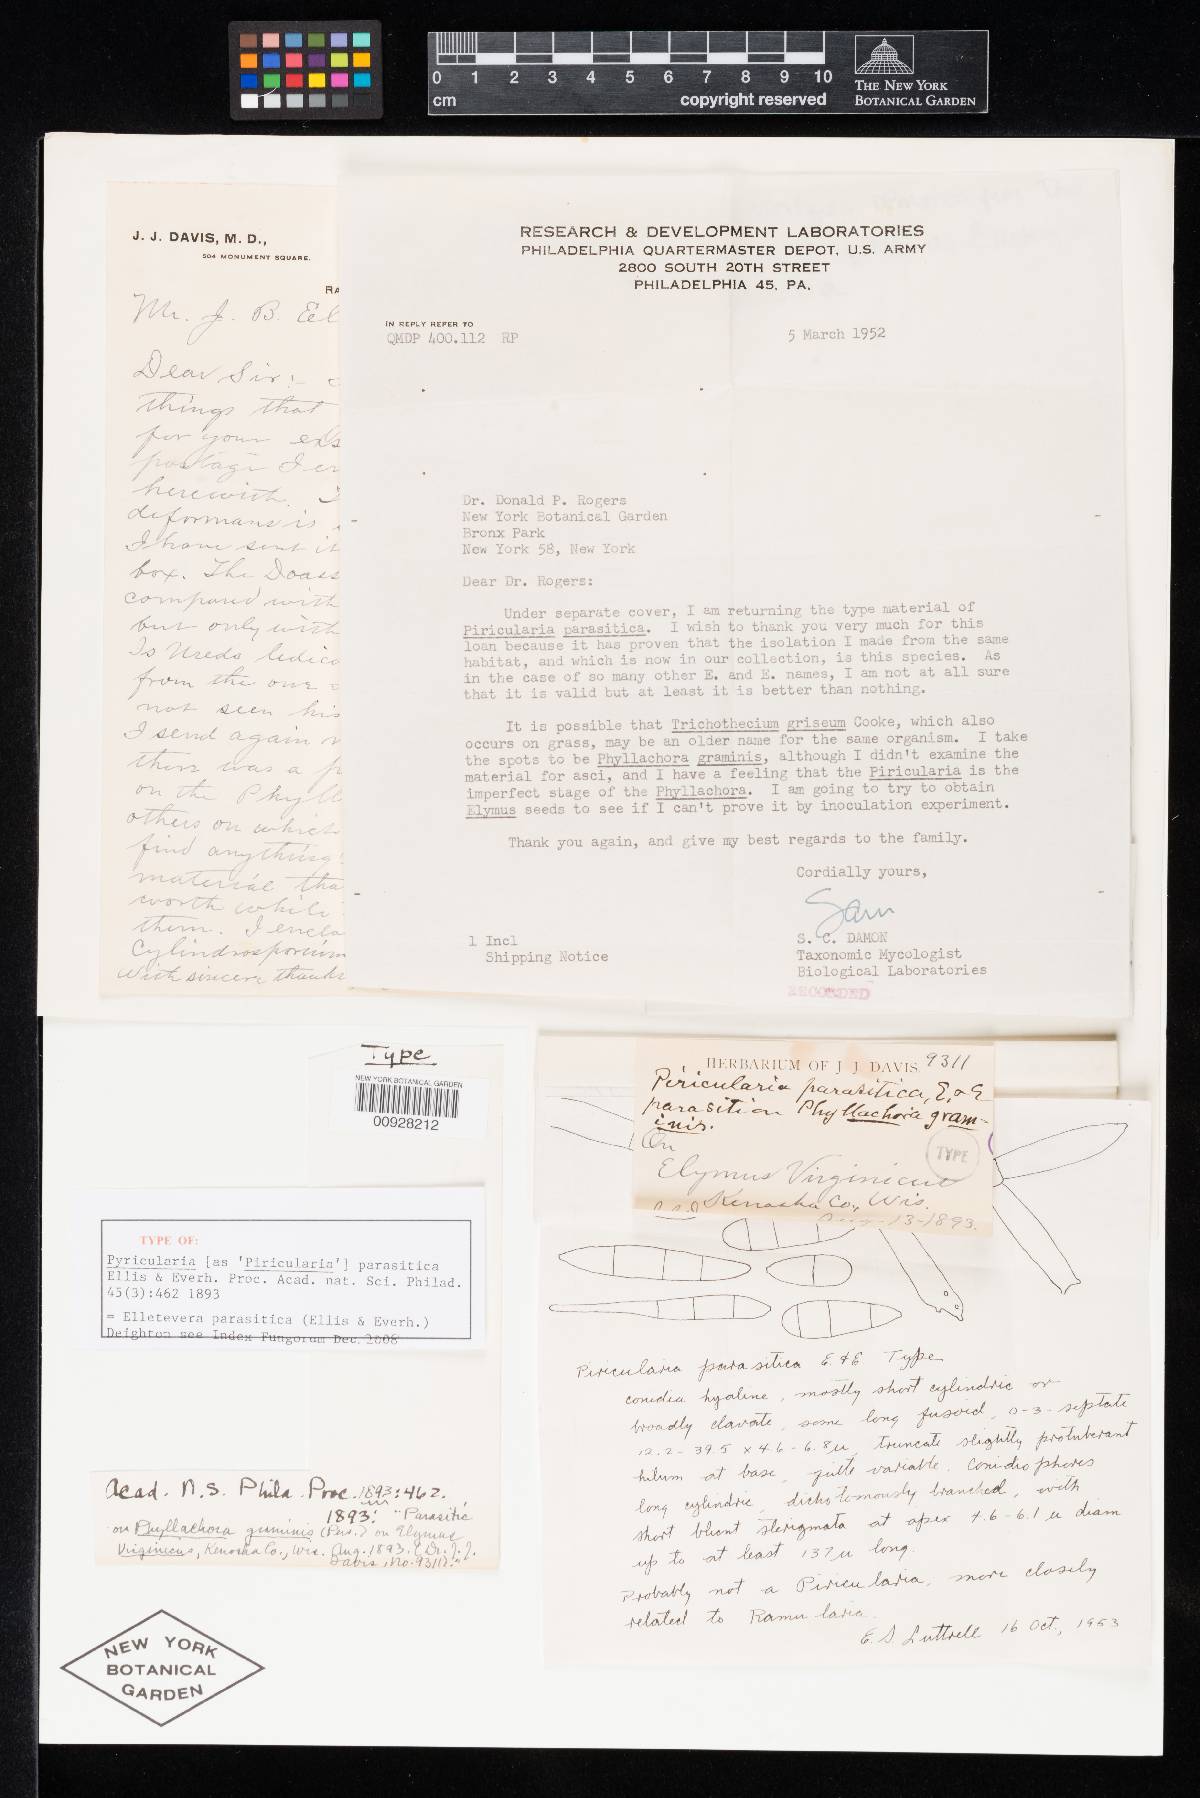 0 1 2 3 4 5 6 7 8 9 10
cm
copyright reserved
THE NEW YORK
BOTANICAL GARDEN
J. J. DAVIS, M. D.,
504 MONUMENT SQUARE.
RA
Mr. J. B. Ell
Dear Sir:-
things that
for your exs
postage I en
herewith.
deformans is
I have sent it
box. The Doass
compared with
but only with
Is Uredo ledico
from the one
not seen his
I send again
there was a
on the Phyll
others on which
find anything
material tha
worth while
them. I enclo
Cylindrosporium
With sincere thanks
RESEARCH & DEVELOPMENT LABORATORIES
PHILADELPHIA QUARTERMASTER DEPOT, U.S. ARMY
2800 SOUTH 20TH STREET
PHILADELPHIA 45, PA.
IN REPLY REFER TO
QMDP 400.112 RP
5 March 1952
Dr. Donald P. Rogers
New York Botanical Garden
Bronx Park
New York 58, New York
Dear Dr. Rogers:
Under separate cover, I am returning the type material of
Piricularia parasitica. I wish to thank you very much for this
loan because it has proven that the isolation I made from the same
habitat, and which is now in our collection, is this species. As
in the case of so many other E. and E. names, I am not at all sure
that it is valid but at least it is better than nothing.
It is possible that Trichothecium griseum Cooke, which also
occurs on grass, may be an older name for the same organism. I take
the spots to be Phyllachora graminis, although I didn't examine the
material for asci, and I have a feeling that the Piricularia is the
imperfect stage of the Phyllachora. I am going to try to obtain
Elymus seeds to see if I can't prove it by inoculation experiment.
Thank you again, and give my best regards to the family.
Cordially yours,
Sam
S. C. DAMON
Taxonomic Mycologist
Biological Laboratories
1 Incl
Shipping Notice
RECORDED
Type
NEW YORK BOTANICAL GARDEN
00928212
TYPE OF:
Pyricularia [as 'Piricularia'] parasitica
Ellis & Everh. Proc. Acad. nat. Sci. Philad.
45(3):462 1893
= Elletevera parasitica (Ellis & Everh.)
Deighton see Index Fungorum Dec. 2008
Acad. N.S. Phila. Proc. 1893:462.
1893: "Parasitic
on Phyllachora graminis (Pers.) on Elymus
Virginicus, Kenosha Co., Wis. Aug. 1893. (Dr. J. J.
Davis, No. 9311)."
NEW YORK
BOTANICAL
GARDEN
HERBARIUM OF J. J. DAVIS. 9311
Piricularia parasitica, E. & E
parasitic on Phyllachora gram-
inis.
On
Elymus Virginicus
TYPE
Kenosha Co., Wis.
Aug-13-1893.
Piricularia parasitica E & E Type
conidia hyaline, mostly short cylindric or
broadly clavate, some long fusoid, 0-3-septate
12.2-39.5 x 4.6-6.8 u, truncate slightly protuberant
hilum at base, quite variable. Conidiophores
long cylindric, dichotomously branched, with
short blunt sterigmata at apex 4.6-6.1 u diam
up to at least 137 u long.
Probably not a Piricularia, more closely
related to Ramularia.
E. S. Luttrell 16 Oct., 1953